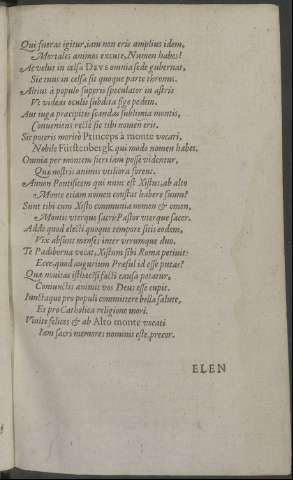 Qui fueras igitur, iam non eris amplius idem,
Mortales animos excute, Numen habes!
Ac velut in celsa Deus omnia sede gubernat,
Sic tuus in celsa sit quoque parte thronus.
Altius à populo superis speculator in astris
Vt videas oculis subdita fige pedem.
Aut iuga præcipitis scandas sublimia montis,
Conveniens recte sic tibi nomen erit.
Sic poteris meritò Princeps à monte vocari,
Nobile Fürstenbergk qui modo nomen habet.
Omnia per montem fieri iam posse videntur,
Quæ nostris animis vtiliora forent.
Annon Pontificem qui nunc est Xistus, ab alto
Monte etiam nomen constat habere suum?
Sunt tibi cum Xisto communia nomen & omen,
Montis vterque sacri Pastor vterque sacer.
Adde quod electi quoque tempore sitis eodem,
Vix absunt menses inter vtrumque duo.
Te Padiborna vocat, Xistum sibi Roma petiuit:
Ecce quod augurium Præsul id esse putas?
Quæ novitas isthæc? si facti causa potatur,
Coniunctos animis vos Deus esse cupit.
Iunctaque pro populi committere bella salute,
Et pro Catholica religione mori.
Viuite felices & ab Alto monte vocati
Iam sacri memores nominis este, precor.
ELEN